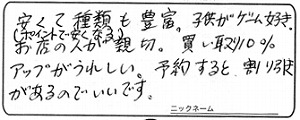 安くて種類も豊富。子供がゲーム好き。
(ポイントで安くなる)
お店の人が親切。買い取り10%
アップがうれしい。予約すると、割り引き
があるのでいいです。
ニックネーム